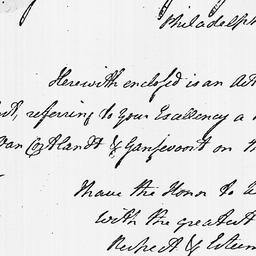 Philadelph
Herewith enclosed is an Act
referring to Your Excellency a
Van Cortlandt & Gansevoort on th
I have the Honor to be
with the greatest
Respect & Esteem